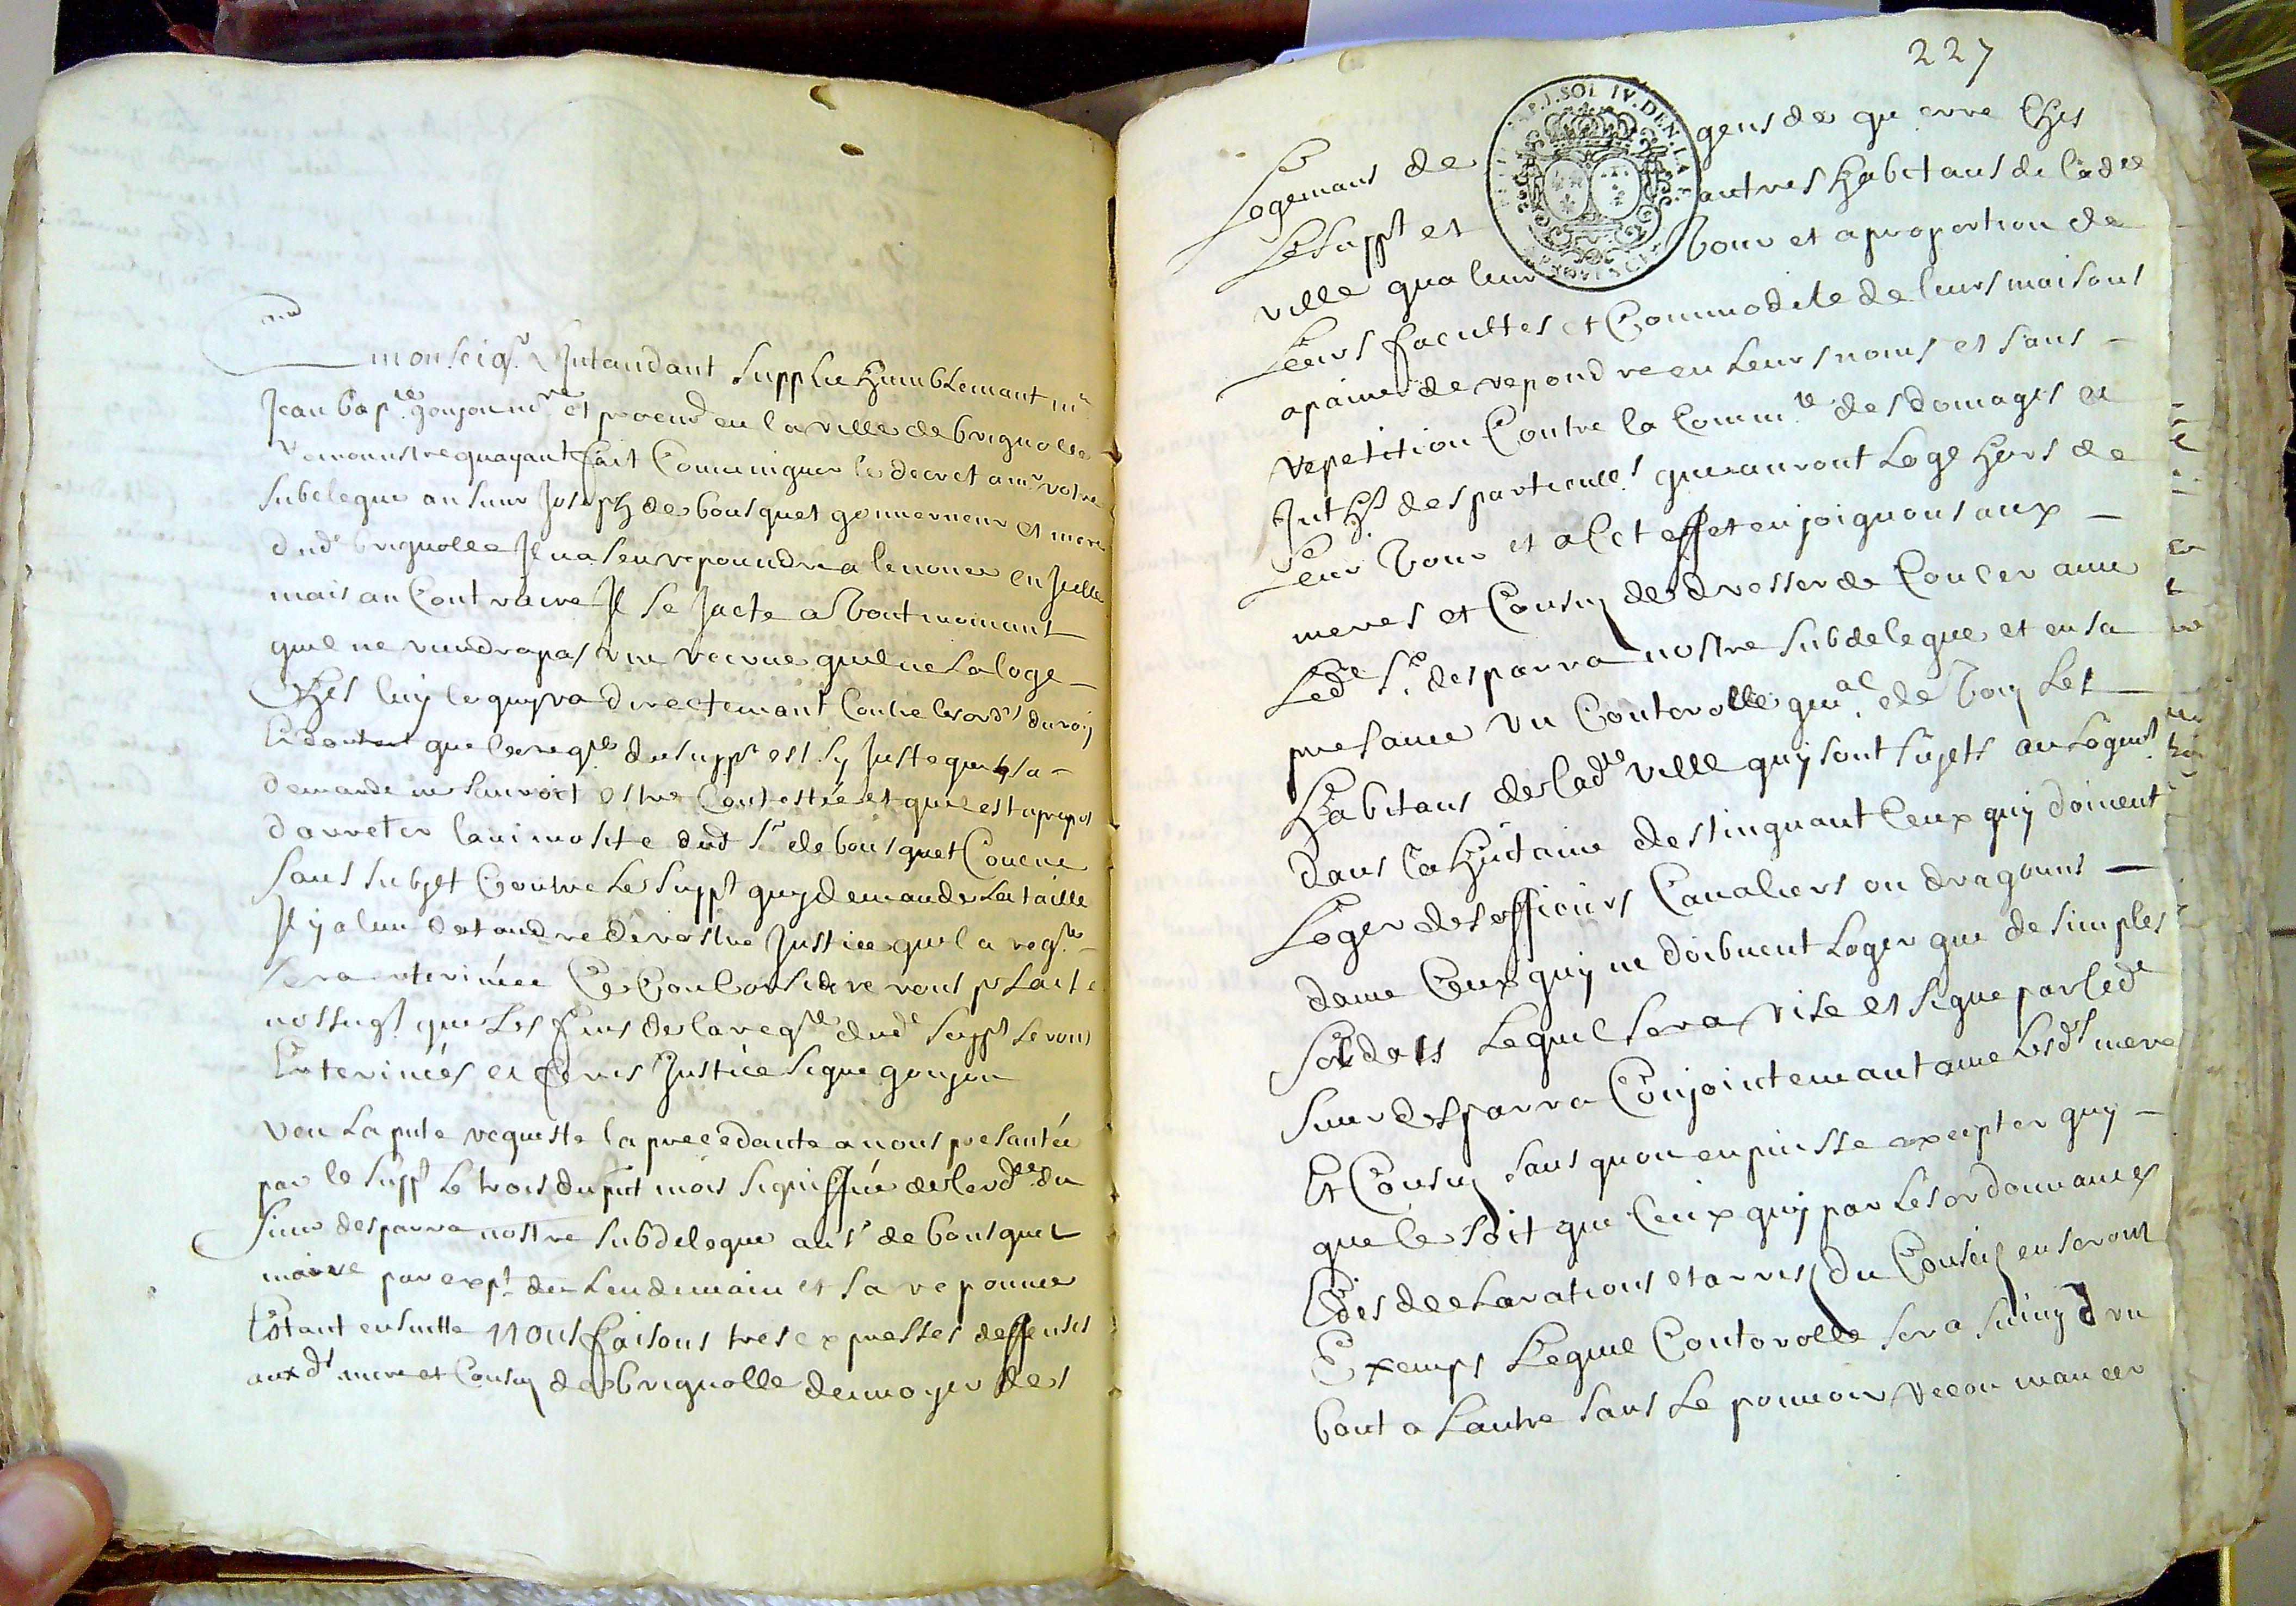 monseigr Intandant supplie humblemant mr
Jean bapte goujon nore et procur en la ville de brignolle
remonstre quayant fait comuniquer le decret a mr vostre
subdelegue au sieur Joseph de bousquet gouverneur et mere
dudt brignolle Il na seu repoundre a lenonce en Icelle
mais au contraire Il se Jacte a tout momant
quil ne viendra pas une recrue quil ne la loge
ches luy le quy va directemant contre les ords du roy
que la reqte du suppt est sy Juste que sa
demande ne sauroit estre contestée et quil est a propos
darreter lanimosite dudt sr de bousquet coneue
sans subjet contre le suppt quy demande la taille
Il y a lieu datandre de vostre Justice que la reqte
sera enterinée Ce Considere vous plaise
que les fins de la reqte dudt suppt seront
Enterinées et feres Justice signe goujon
Veu la pnte requeste la precedante a nous presantée
par le suppt le trois du pnt mois signiffiée de lordce du
sieur desparra nostre subdelegue au sr de bousquet
maire par expt du lendemain et sa reponce
Estant ensuitte nous faisons tres expresses deffenses
auxds mere et Consuls de brignolle denvoyer des
227
logemans de gens de guerre Ches
Le suppt et autres habitans de ladte
ville qua leur tour et a proportion de
Leurs facultes et Commodite de leurs maisons
a paine de repondre en leurs noms et sans
repetition Contre la Commte des domages et
Inths des particuliers quauront loge hors de
Leur tour et a Cet effet enjoignons aux
meres et Consuls de dresser de Concer avec
Ledt Sr desparra nostre subdelegue et en sa
presance un Contorolle genal de tous les
habitans de ladte ville quy sont sujets au logemt
dans la huitaine destinguant Ceux quy doivent
Loger des officiers Cavaliers ou dragouns
davec Ceux quy ne doibvent loger que de simples
soldats Lequel sera vise et signe par ledt
sieur desparra Conjointemant avec lesds mere
Et Consuls sans quon en puisse excepter quy
que ce soit que Ceux quy par les ordonnances
Edis declarations et arrest du Conseil en seront
Exemps Lequel Contorolle sera suivy dun
bout a lautre sans le pouvoir recommancer